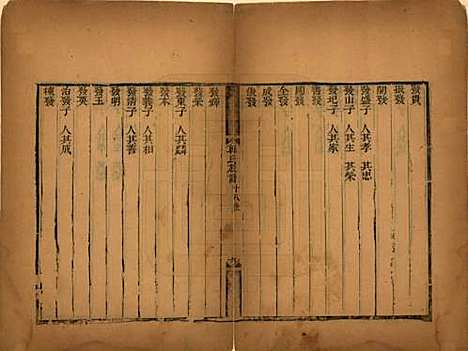 發貴
振發
開發
發盛子 人其孝 其忠
發山子 人其生 其榮
發地子 人其家
善發
國發
全發
成發
俊發
十八世
九
發輝
發榮
發東子 人其麟
發本
發義子 人其和
發清子 人其善
發明
發玉
發英
治發子 人其成
棟發